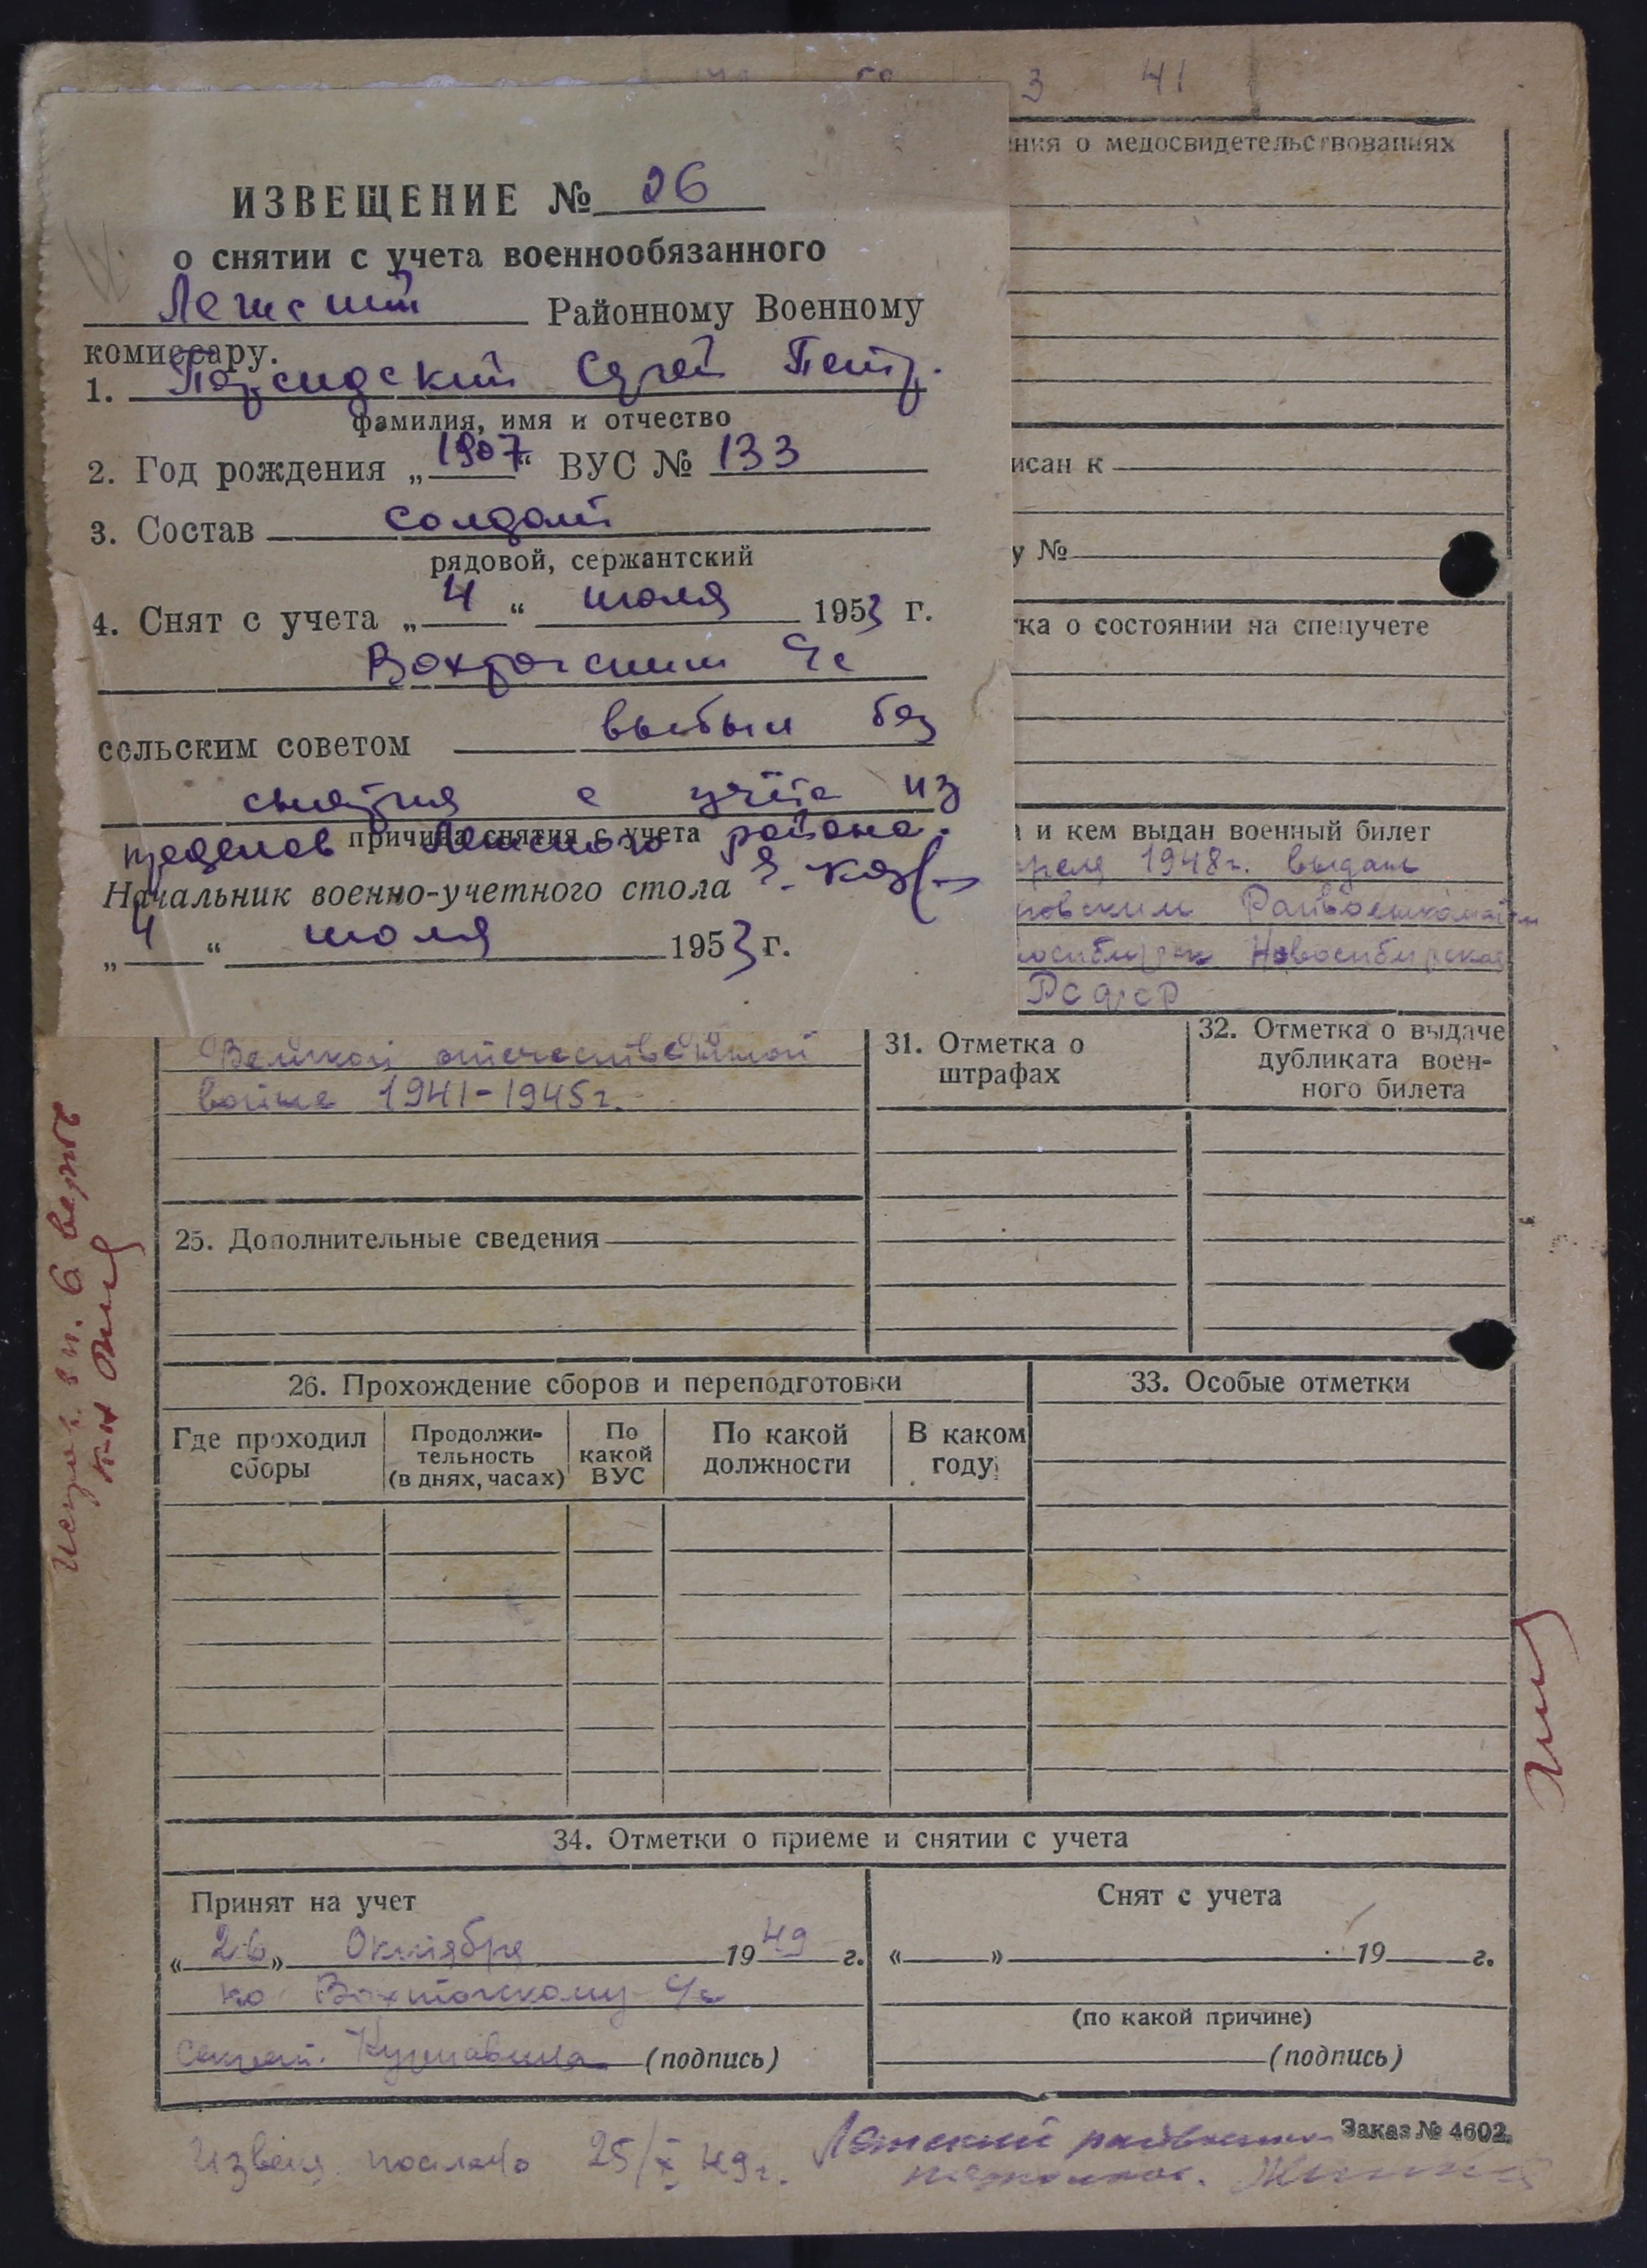 3 41
ИЗВЕЩЕНИЕ № 26
о снятии с учета военнообязанного
Районному Военному
комиссару.
1. Сергей Петр.
фамилия, имя и отчество
2. Год рождения „1907“ ВУС № 133
3. Состав солдат
рядовой, сержантский
4. Снят с учета „4“ июля 1953 г.
сельским советом выбыл без
снятия с учёта из
пределов района.
причина снятия с учета
Начальник военно-учетного стола
„4“ июля 1953 г.
ния о медосвидетельствованиях
исан к
у №
тка о состоянии на спецучете
и кем выдан военный билет
преля 1948г. выдан
Райвоенкоматом
Новосибирская
РСФСР
Великой отечественной
войне 1941-1945г.
25. Дополнительные сведения
31. Отметка о
штрафах
32. Отметка о выдаче
дубликата воен-
ного билета
26. Прохождение сборов и переподготовки
Где проходил
сборы
Продолжи-
тельность
(в днях, часах)
По
какой
ВУС
По какой
должности
В каком
году
33. Особые отметки
34. Отметки о приеме и снятии с учета
Принят на учет
« 26 » Октября 19 49 г.
по
(подпись)
Снят с учета
« » 19 г.
(по какой причине)
(подпись)
Заказ № 4602.
Извещ. послано 25/X 49г.
п. 6 верить